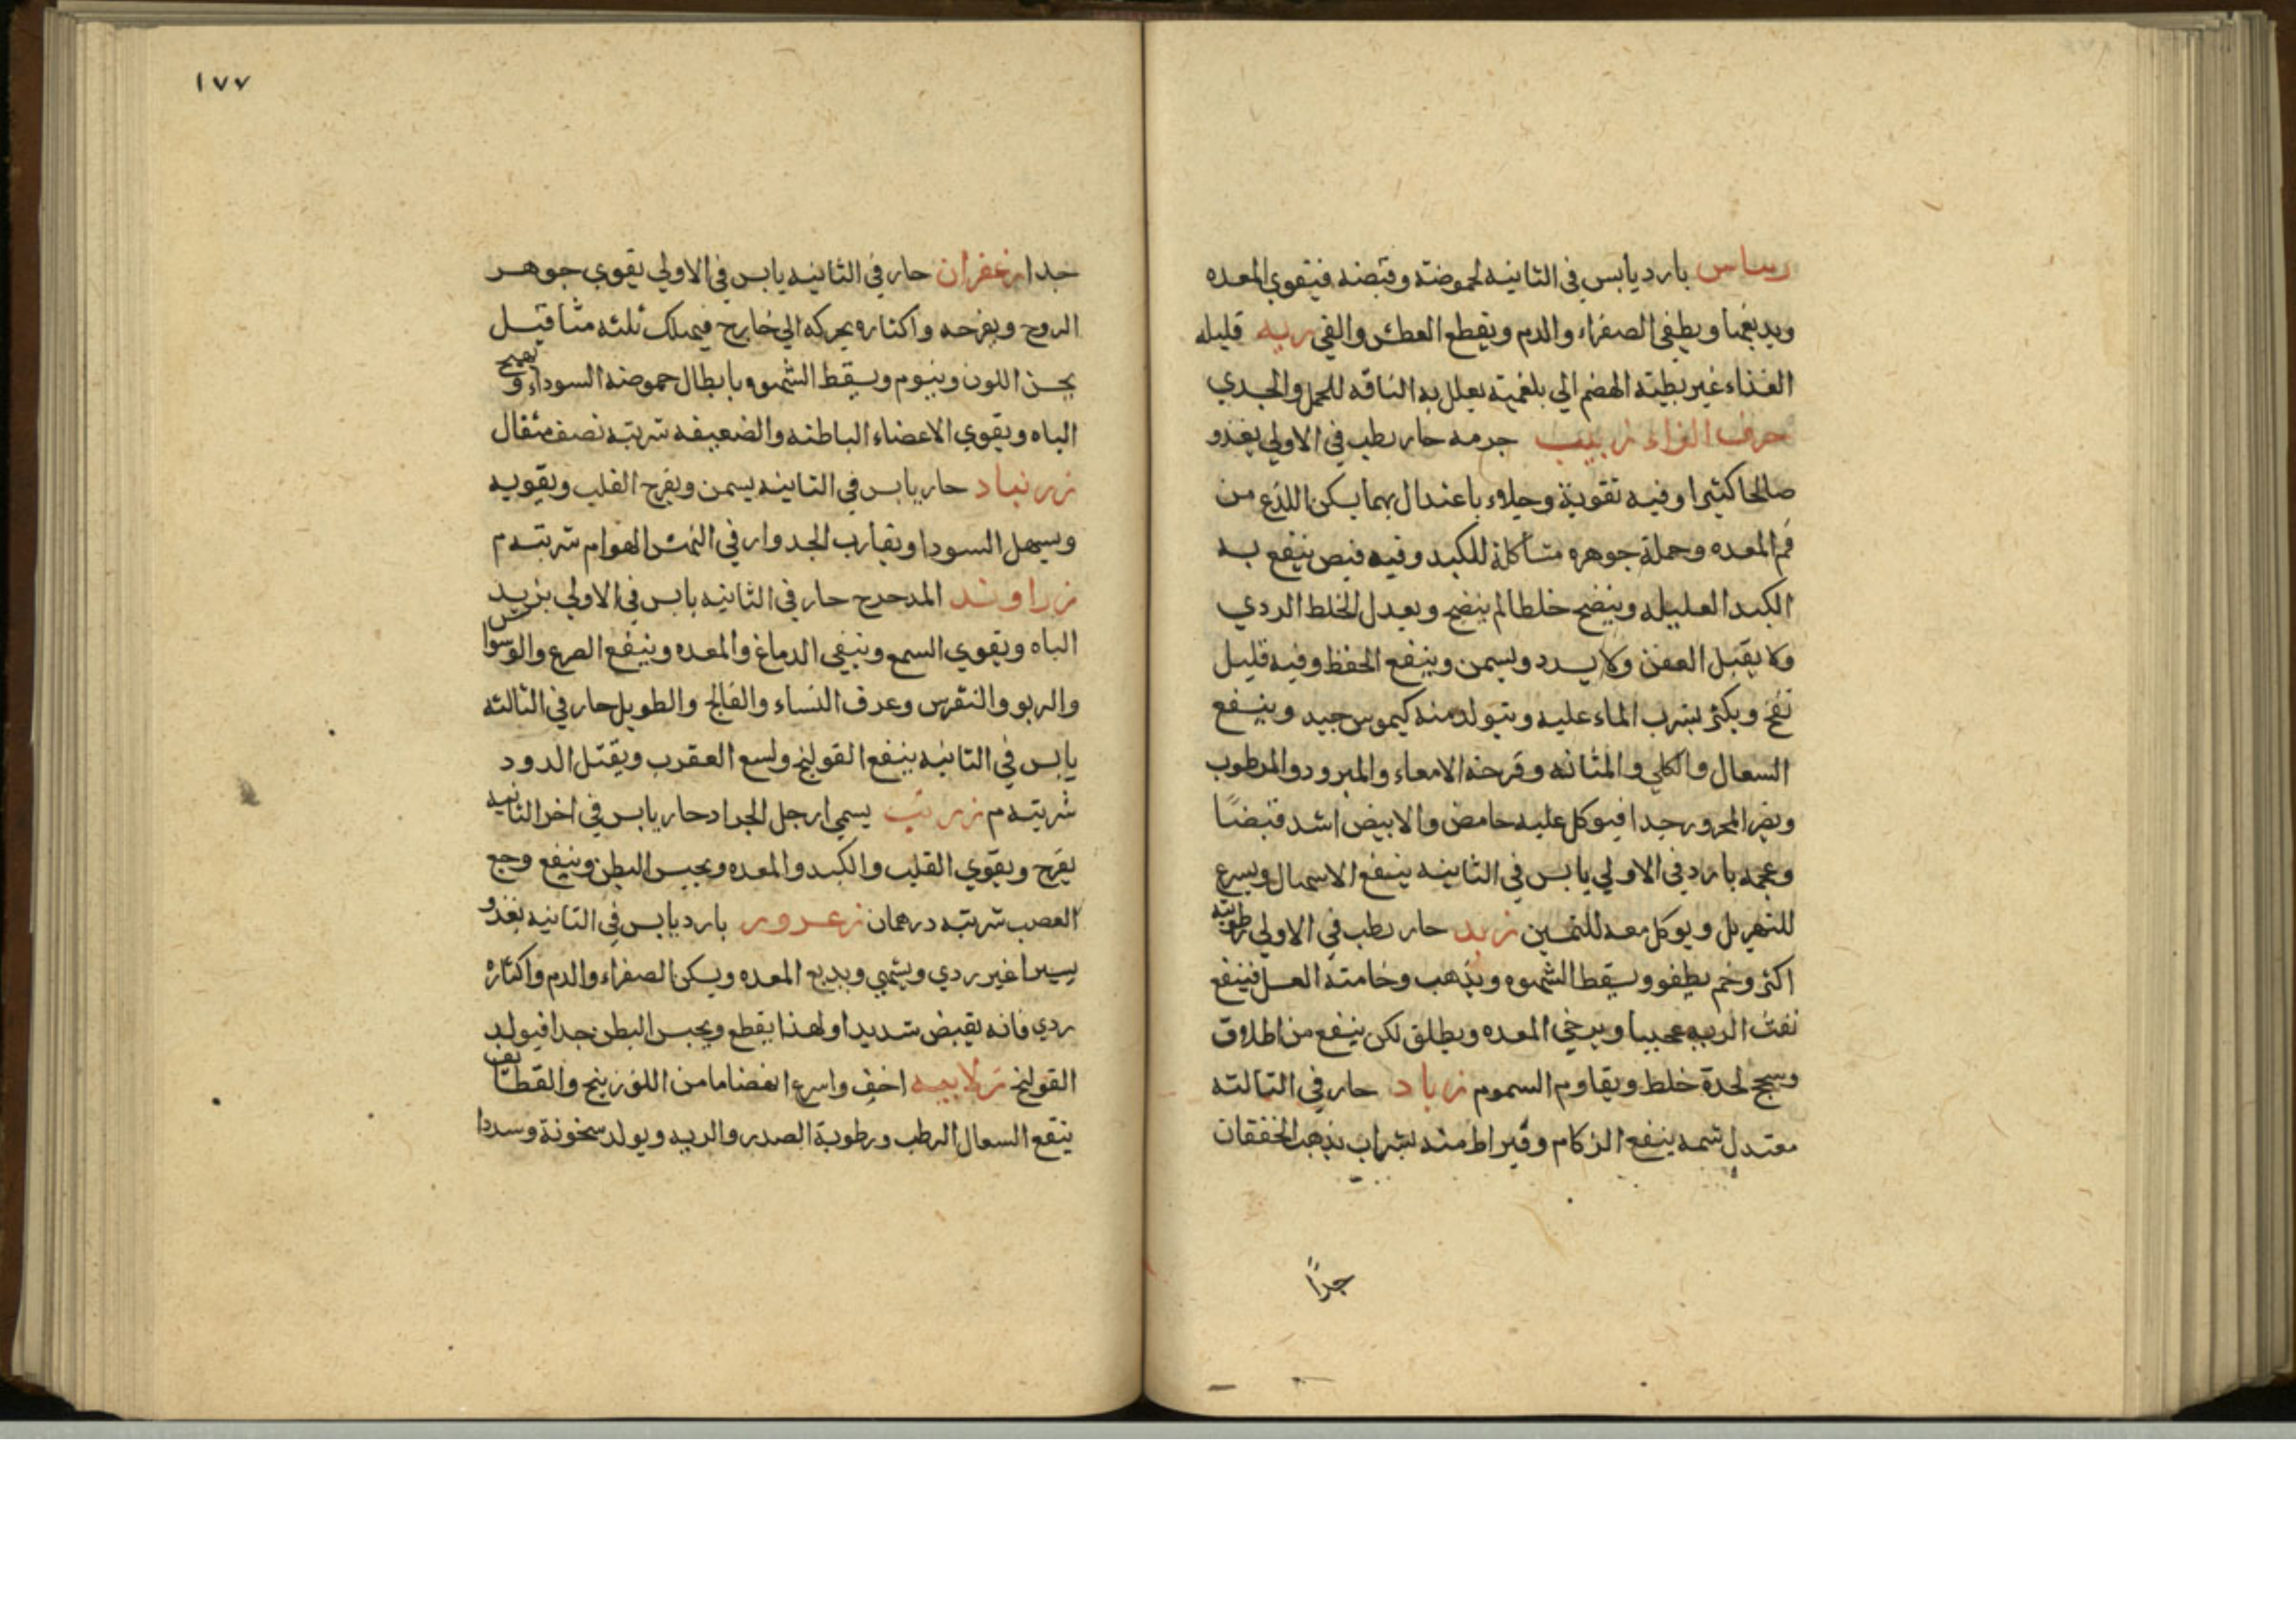 ريباس بارد يابس في الثانيه لحموضته وقبضه فيتقوي المعده
ويدبغها ويطفي الصفراء والدم ويقطع العطش والقي ريه قليله
الغذاء غير بطيئه الهضم الي بلغميته يعلل به الناقه للحمل والجدي
حرف الزاء زبيب جرمه حار رطب في الاولي يغذو
صالحا كثيرا وفيه تقوية وجلاء باعتدال بهما يسكن اللذع من
فم المعده وجملة جوهره مشاكلة للكبد وفيه قبض ينفع به
الكبد العليله وينضج خلطا لم ينضج ويعدل الخلط الردي
ولا يقبل العفن ولا يسدد ويسمن وينفع الحفظ وفيه قليل
نفخ ويكثر بشرب الماء عليه ويتولد منه كيموس جيد وينفع
السعال والكلي والمثانه وقرحة الامعاء والمبرود والمرطوب
ويضر المحرور جدا فيوكل عليه حامض والابيض اشد قبضًا
وعجمه بارد في الاولي يابس في الثانيه ينفع الاسهال ويسرع
للتهزيل ويوكل معه للتسمين زبد حار رطب في الاولي رطوبته
اكثر وخم يطفو ويسقط الشهوه ويذهب وخامته العسل فينفع
نفث الريه عجيبا ويرخي المعده ويطلق لكن ينفع من اطلاق
وسحج لحدة خلط ويقاوم السموم زباد حار في الثالثه
معتدل شمه ينفع الزكام وقيراط منه بشراب يذهب الخفقان
جدًا
١٧٧
جدا زعفران حار في الثانيه يابس في الاولي يقوي جوهر
الروح ويفرحه واكثاره يحركه الي خارج فيهلك ثلثه مثاقيل
يحسن اللون وينوم ويسقط الشهوه بابطال حموضه السوداء ويهيج
الباه ويقوي الاعضاء الباطنه والضعيفه شربته نصف مثقال
زرنباد حار يابس في الثانيه يسمن ويفرح القلب ويقويه
ويسهل السودا ويقارب الجدوار في النهش الهوام شربته م
زراوند المدحرج حار في الثانيه يابس في الاولي يزيد
الباه ويقوي السمع وينقي الدماغ والمعده وينفع الصرع والوسواس
والربو والنقرس وعرق النساء والفالج والطويل حار في الثالثه
يابس في الثانيه ينفع القولنج ولسع العقرب ويقتل الدود
شربته م زرنب يسمي ارجل الجراد حار يابس في اخر الثانيه
يفرح ويقوي القلب والكبد والمعده ويحبس البطن وينفع وجع
العصب شربته درهمان زعرور بارد يابس في الثانيه يغذو
يسيرا غير ردي ويشهي ويدبغ المعده ويسكن الصفراء والدم واكثاره
ردي فانه يقبض شديدا ولهذا يقطع ويحبس البطن جدا فيولد
القولنج زلابيه اخف واسرع انهضاما من اللوزينج والقطائف
ينفع السعال الرطب ورطوبة الصدر والريه ويولد سخونة وسددا